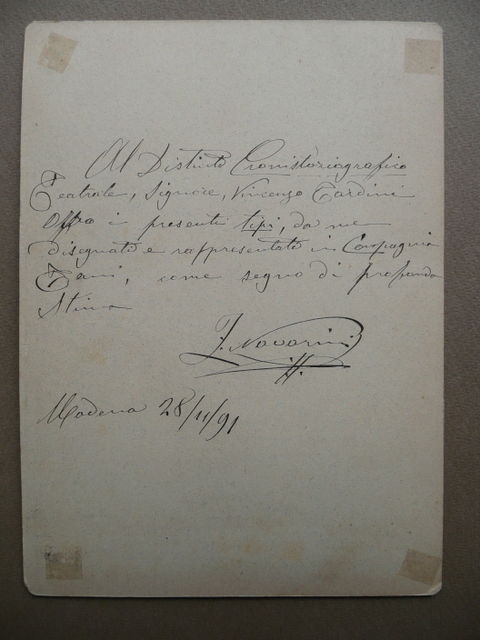 Al Distinto Cronistoriografico
Teatrale, Signore, Vincenzo Tardini
Offro i presenti tipi, da me
disegnati e rappresentati in Compagnia
Tani, come segno di profonda
Stima
F. Navarini
Modena 28/11/91